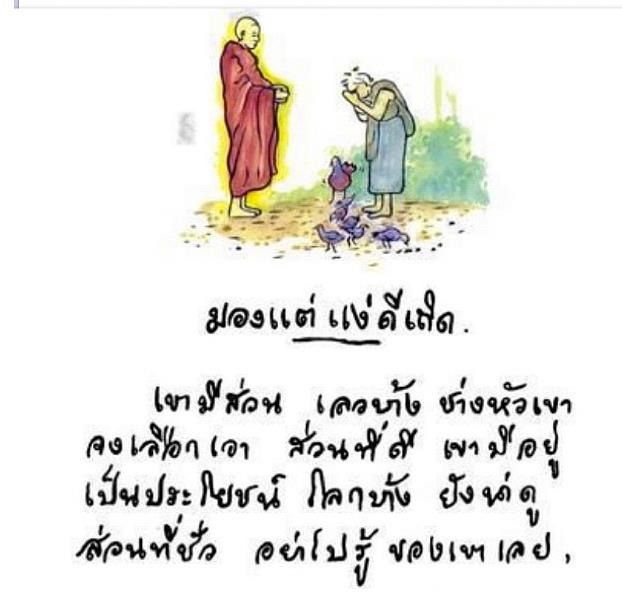 มองแต่แง่ดีเถิด.
เขามีส่วน เลวบ้าง ช่างหัวเขา
จงเลือกเอา ส่วนที่ดี เขามีอยู่
เป็นประโยชน์ โลกบ้าง ยังน่าดู
ส่วนที่ชั่ว อย่าไปรู้ ของเขาเลย,